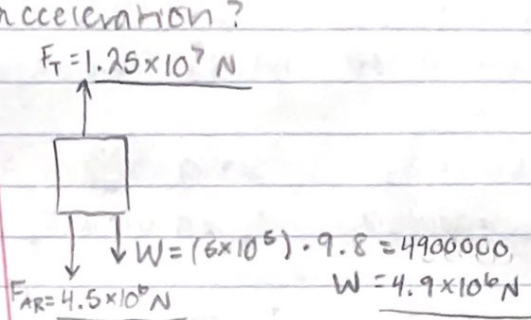 Acceleration?
F_T = 1.25×10⁷ N
W = (5×10⁵) · 9.8 = 4900000
F_AR = 4.5×10⁶ N
W = 4.9×10⁶ N